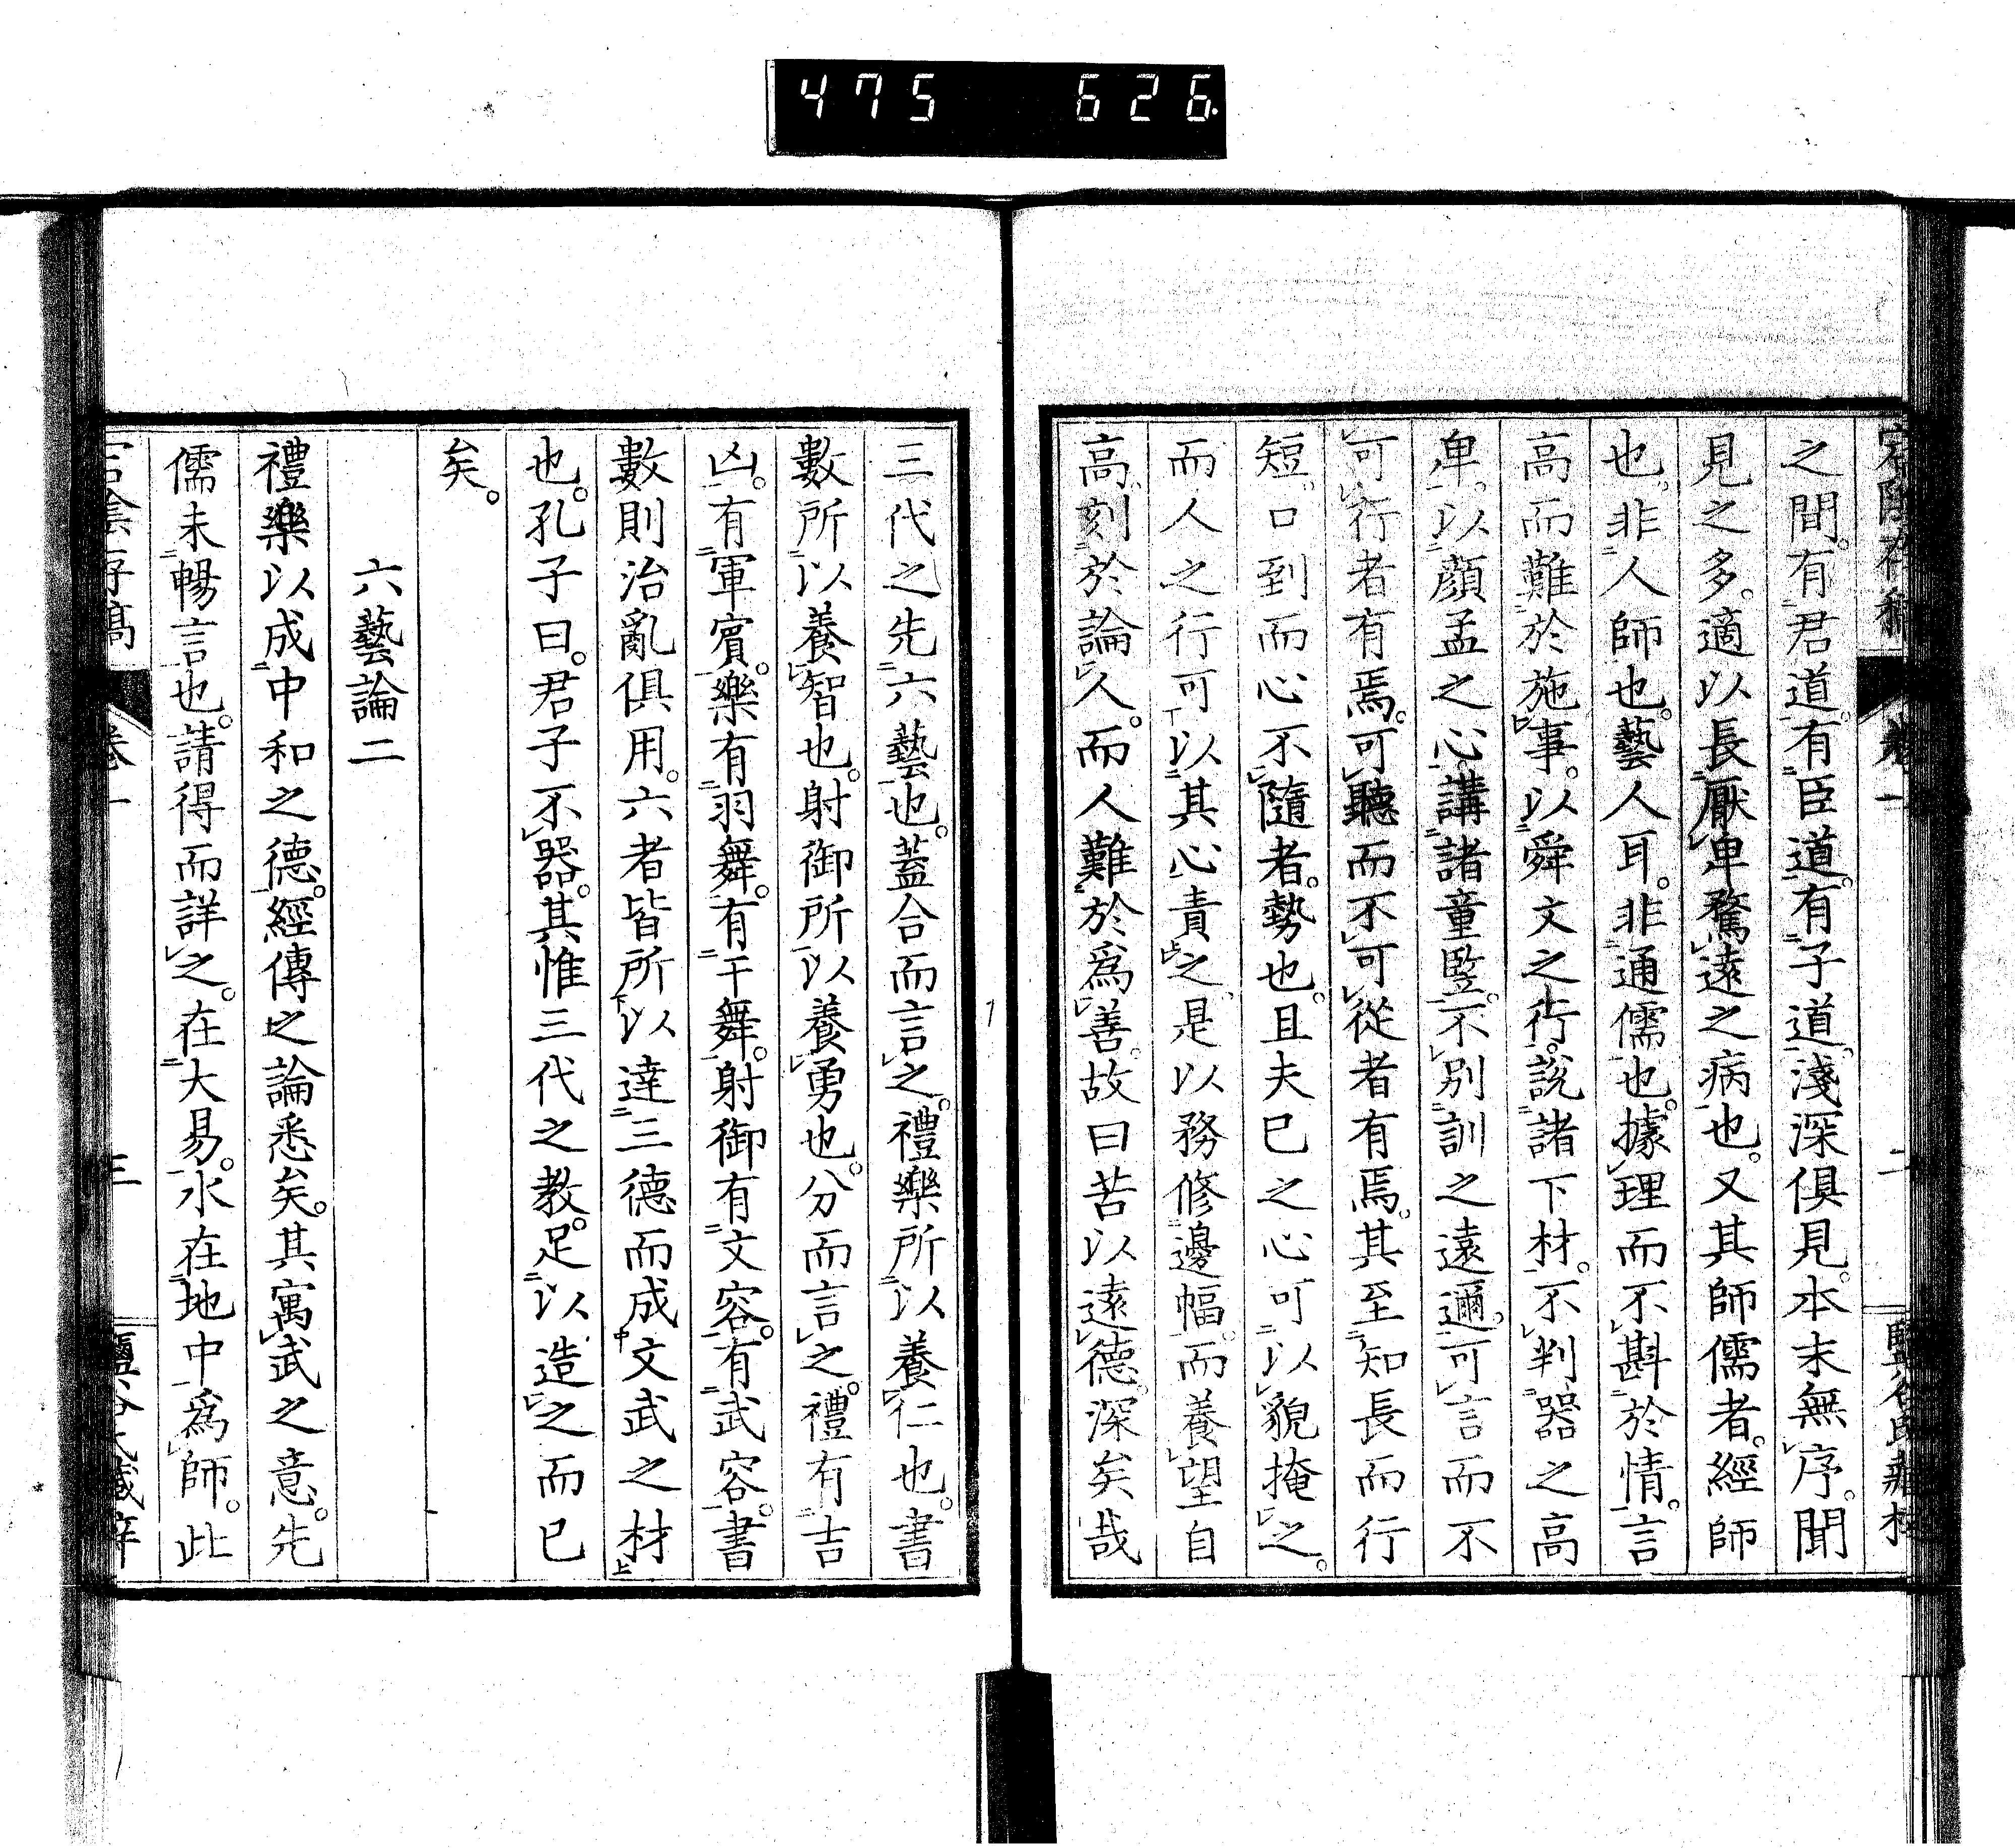 475 626
之間。有君道。有臣道。有子道。淺深俱見。本末無序。聞
見之多。適以長厭卑騖遠之病也。又其師儒者。經師
也。非人師也。藝人耳。非通儒也。據理而不斟於情。言
高而難於施事。以舜文之行。說諸下材。不判器之高
卑。以顏孟之心。講諸童竪。不別訓之遠邇。可言而不
可行者有焉。可聽而不可從者有焉。其至知長而行
短。口到而心不隨者。勢也。且夫已之心可以貌掩之。
而人之行可以其心責之。是以務修邊幅。而養望自
高。刻於論人。而人難於爲善。故曰苦以遠德。深矣哉
三代之先六藝也。蓋合而言之。禮樂所以養仁也。書
數所以養智也。射御所以養勇也。分而言之。禮有吉
凶。有軍賓。樂有羽舞。有干舞。射御有文容。有武容。書
數則治亂俱用。六者皆所以達三德而成文武之材
也。孔子曰。君子不器。其惟三代之教。足以造之而已
矣。
六藝論二
禮樂以成中和之德。經傳之論悉矣。其寓武之意。先
儒未暢言也。請得而詳之。在大易。水在地中爲師。此